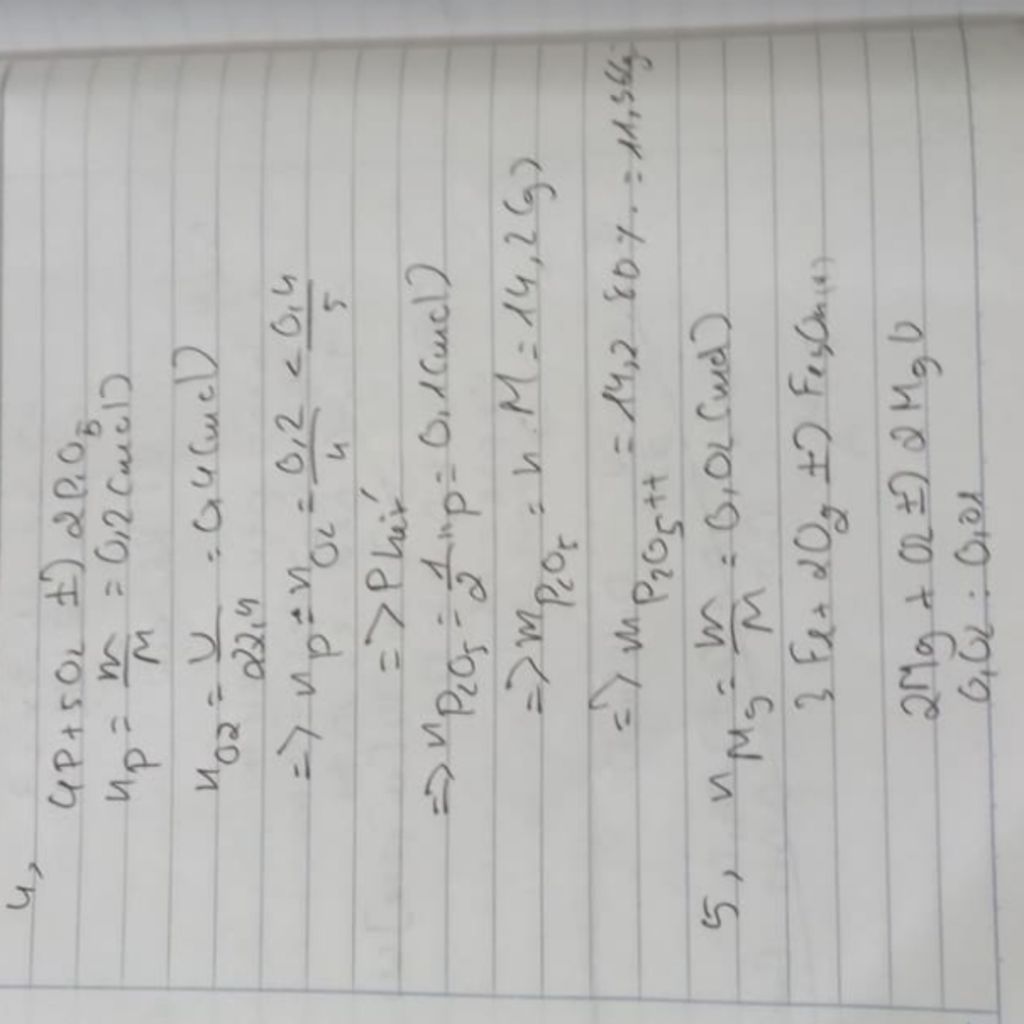 4,
4P + 5O2 t°→ 2P2O5
nP = m/M = 0,2 (mol)
nO2 = V/22,4 = 0,4 (mol)
=> nP : nO2 = 0,2/4 < 0,4/5
=> P hết
=> nP2O5 = 1/2 nP = 0,1 (mol)
=> mP2O5 = n.M = 14,2 (g)
=> mP2O5 tt = 14,2 . 80% = 11,36g
5, nMg = m/M = 0,02 (mol)
3Fe + 2O2 t°→ Fe3O4
2Mg + O2 t°→ 2MgO
0,02 : 0,01